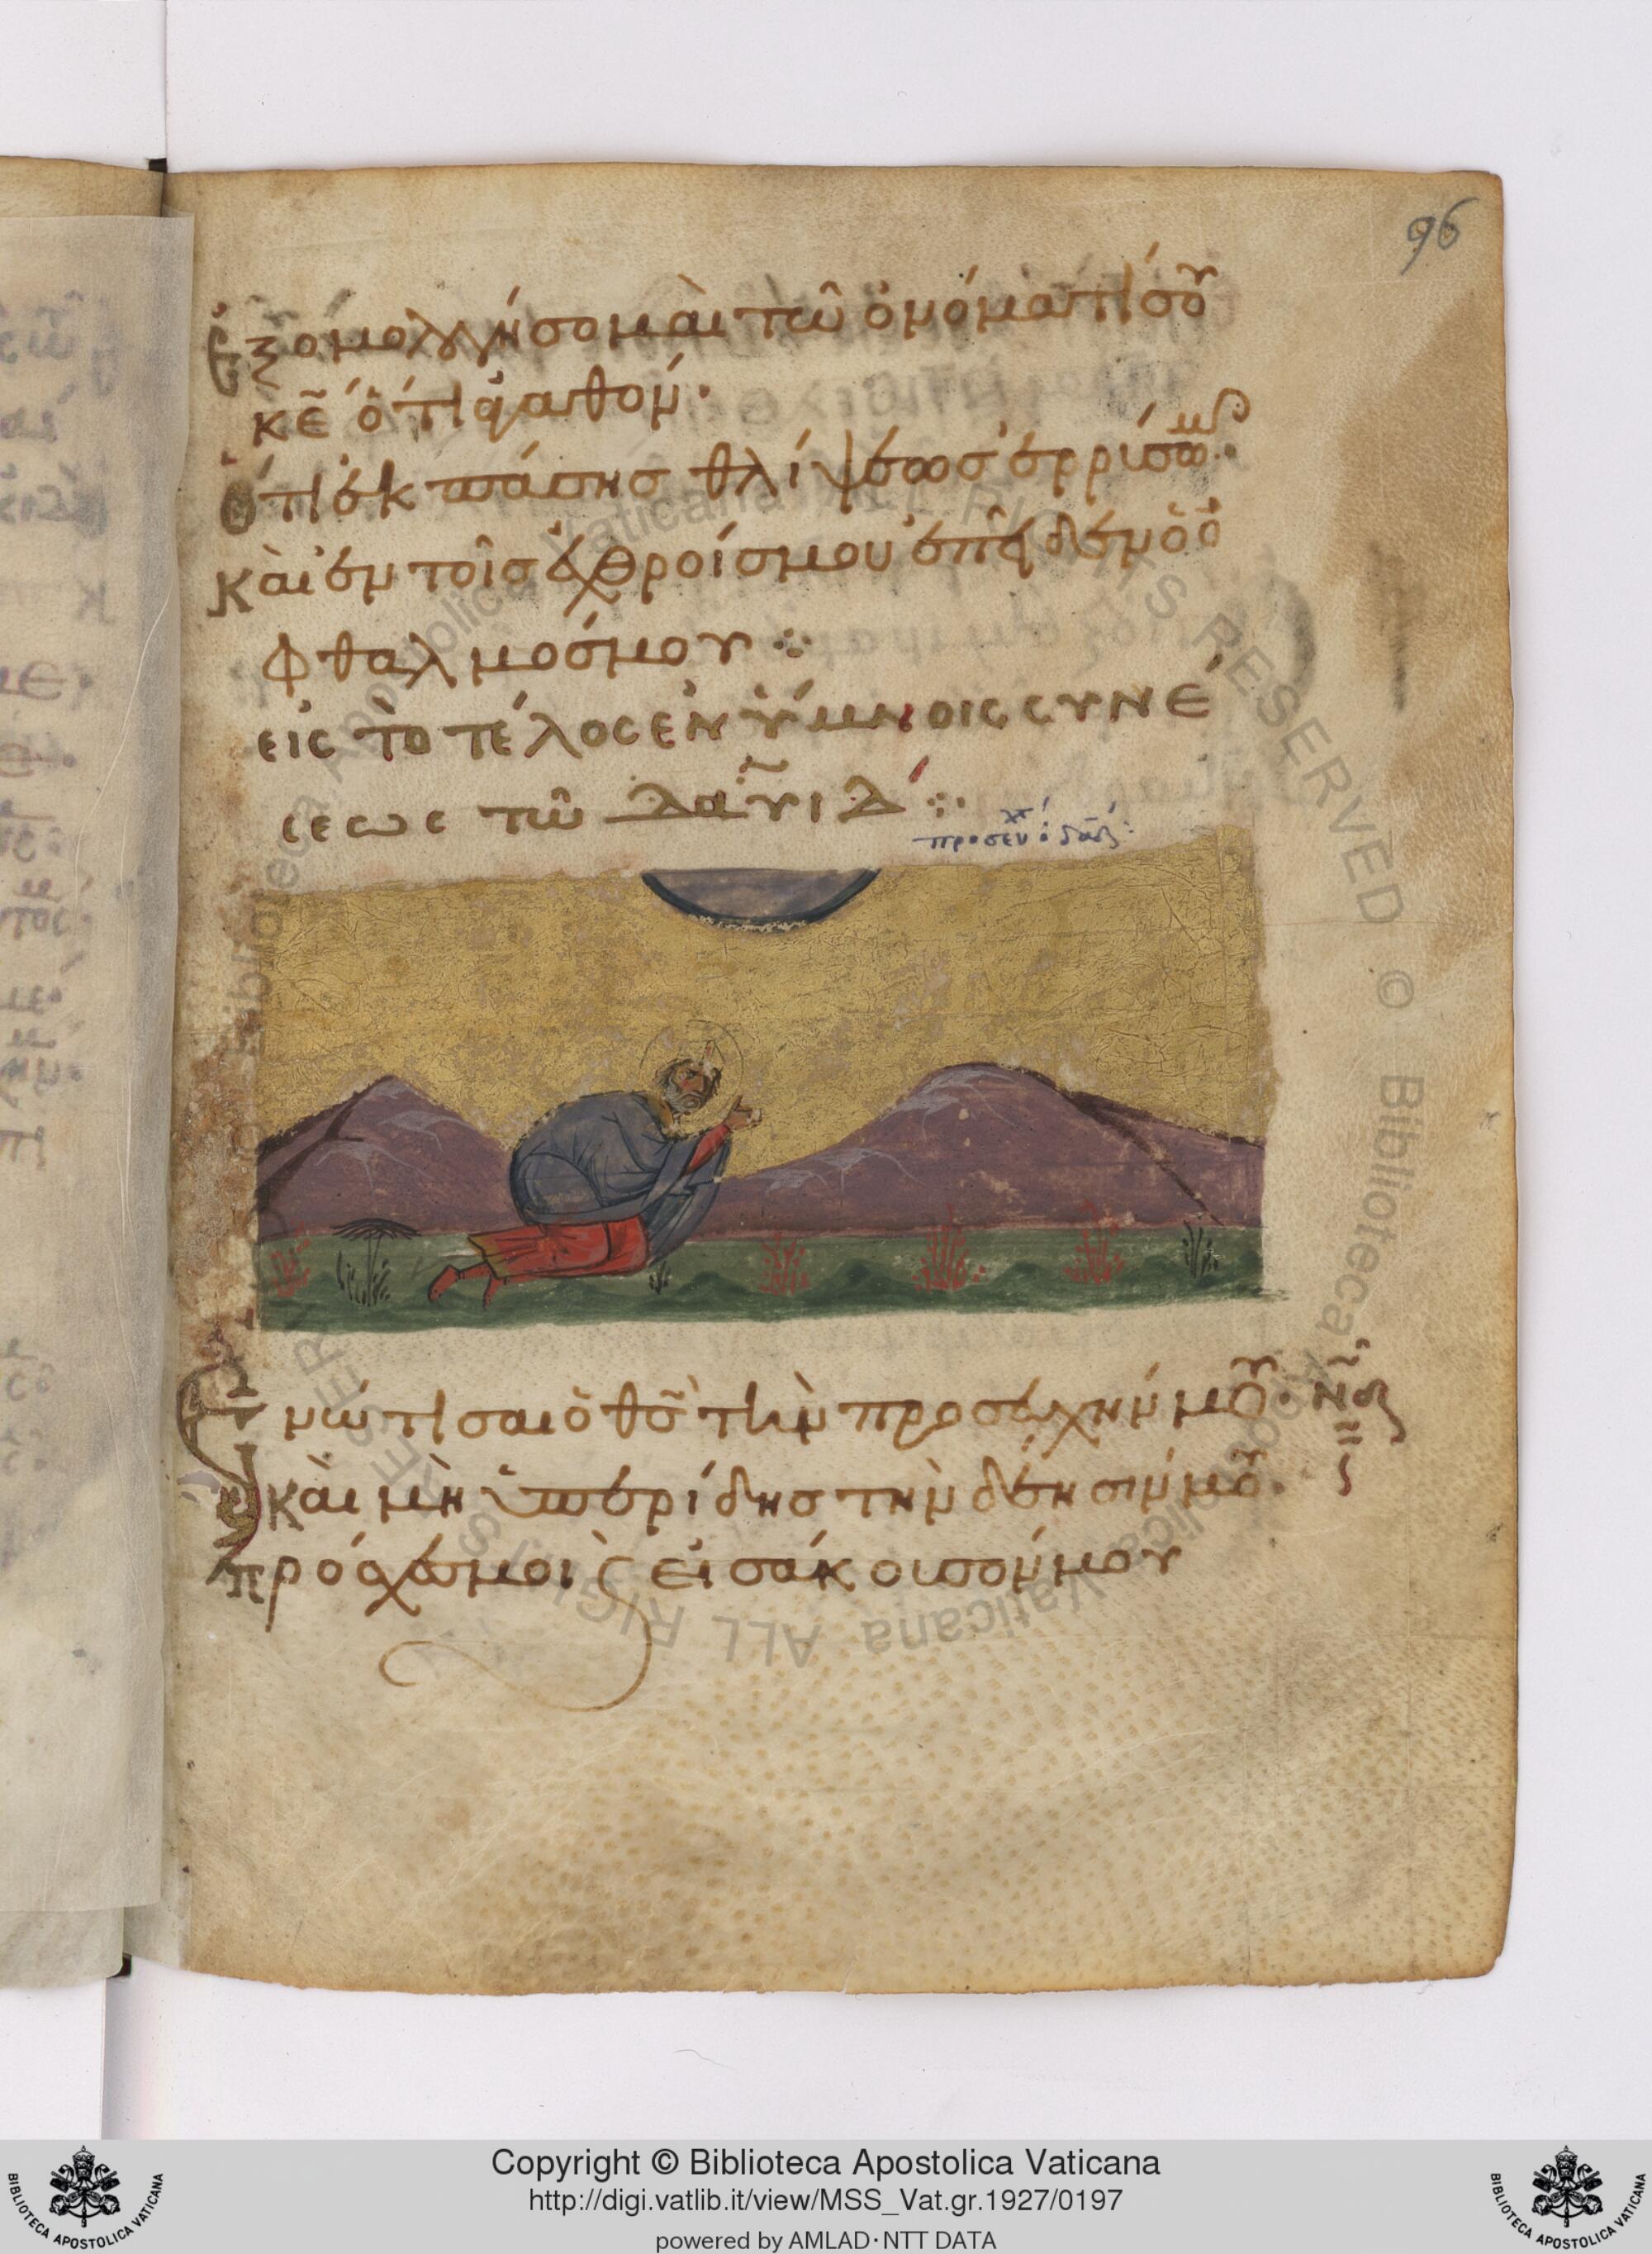 96
ἐξομολογήσομαι τῶ ὀνόματί σου
κε ὅτι ἀγαθόν·
ὅτι ἐκ πάσης θλίψεως ἐρρύσω με·
καὶ ἐν τοῖς ἐχθροῖς μου ἐπεῖδεν ὁ ὀ
φθαλμός μου
εἰς τὸ τέλος ἐν ὕμνοις συνέ
σεως τῶ Δαυΐδ
Ἐνώτισαι ὁ θς τὴν προσευχήν μου· νδ
καὶ μὴ ὑπερίδης τὴν δέησίν μου·
πρόσχες μοι ϗ εἰσάκουσόν μου
Biblioteca Apostolica Vaticana ALL RIGHTS RESERVED © Biblioteca Apostolica Vaticana ALL RIGHTS RESERVED ©
Copyright © Biblioteca Apostolica Vaticana
http://digi.vatlib.it/view/MSS_Vat.gr.1927/0197
powered by AMLAD·NTT DATA
BIBLIOTECA APOSTOLICA VATICANA
BIBLIOTECA APOSTOLICA VATICANA